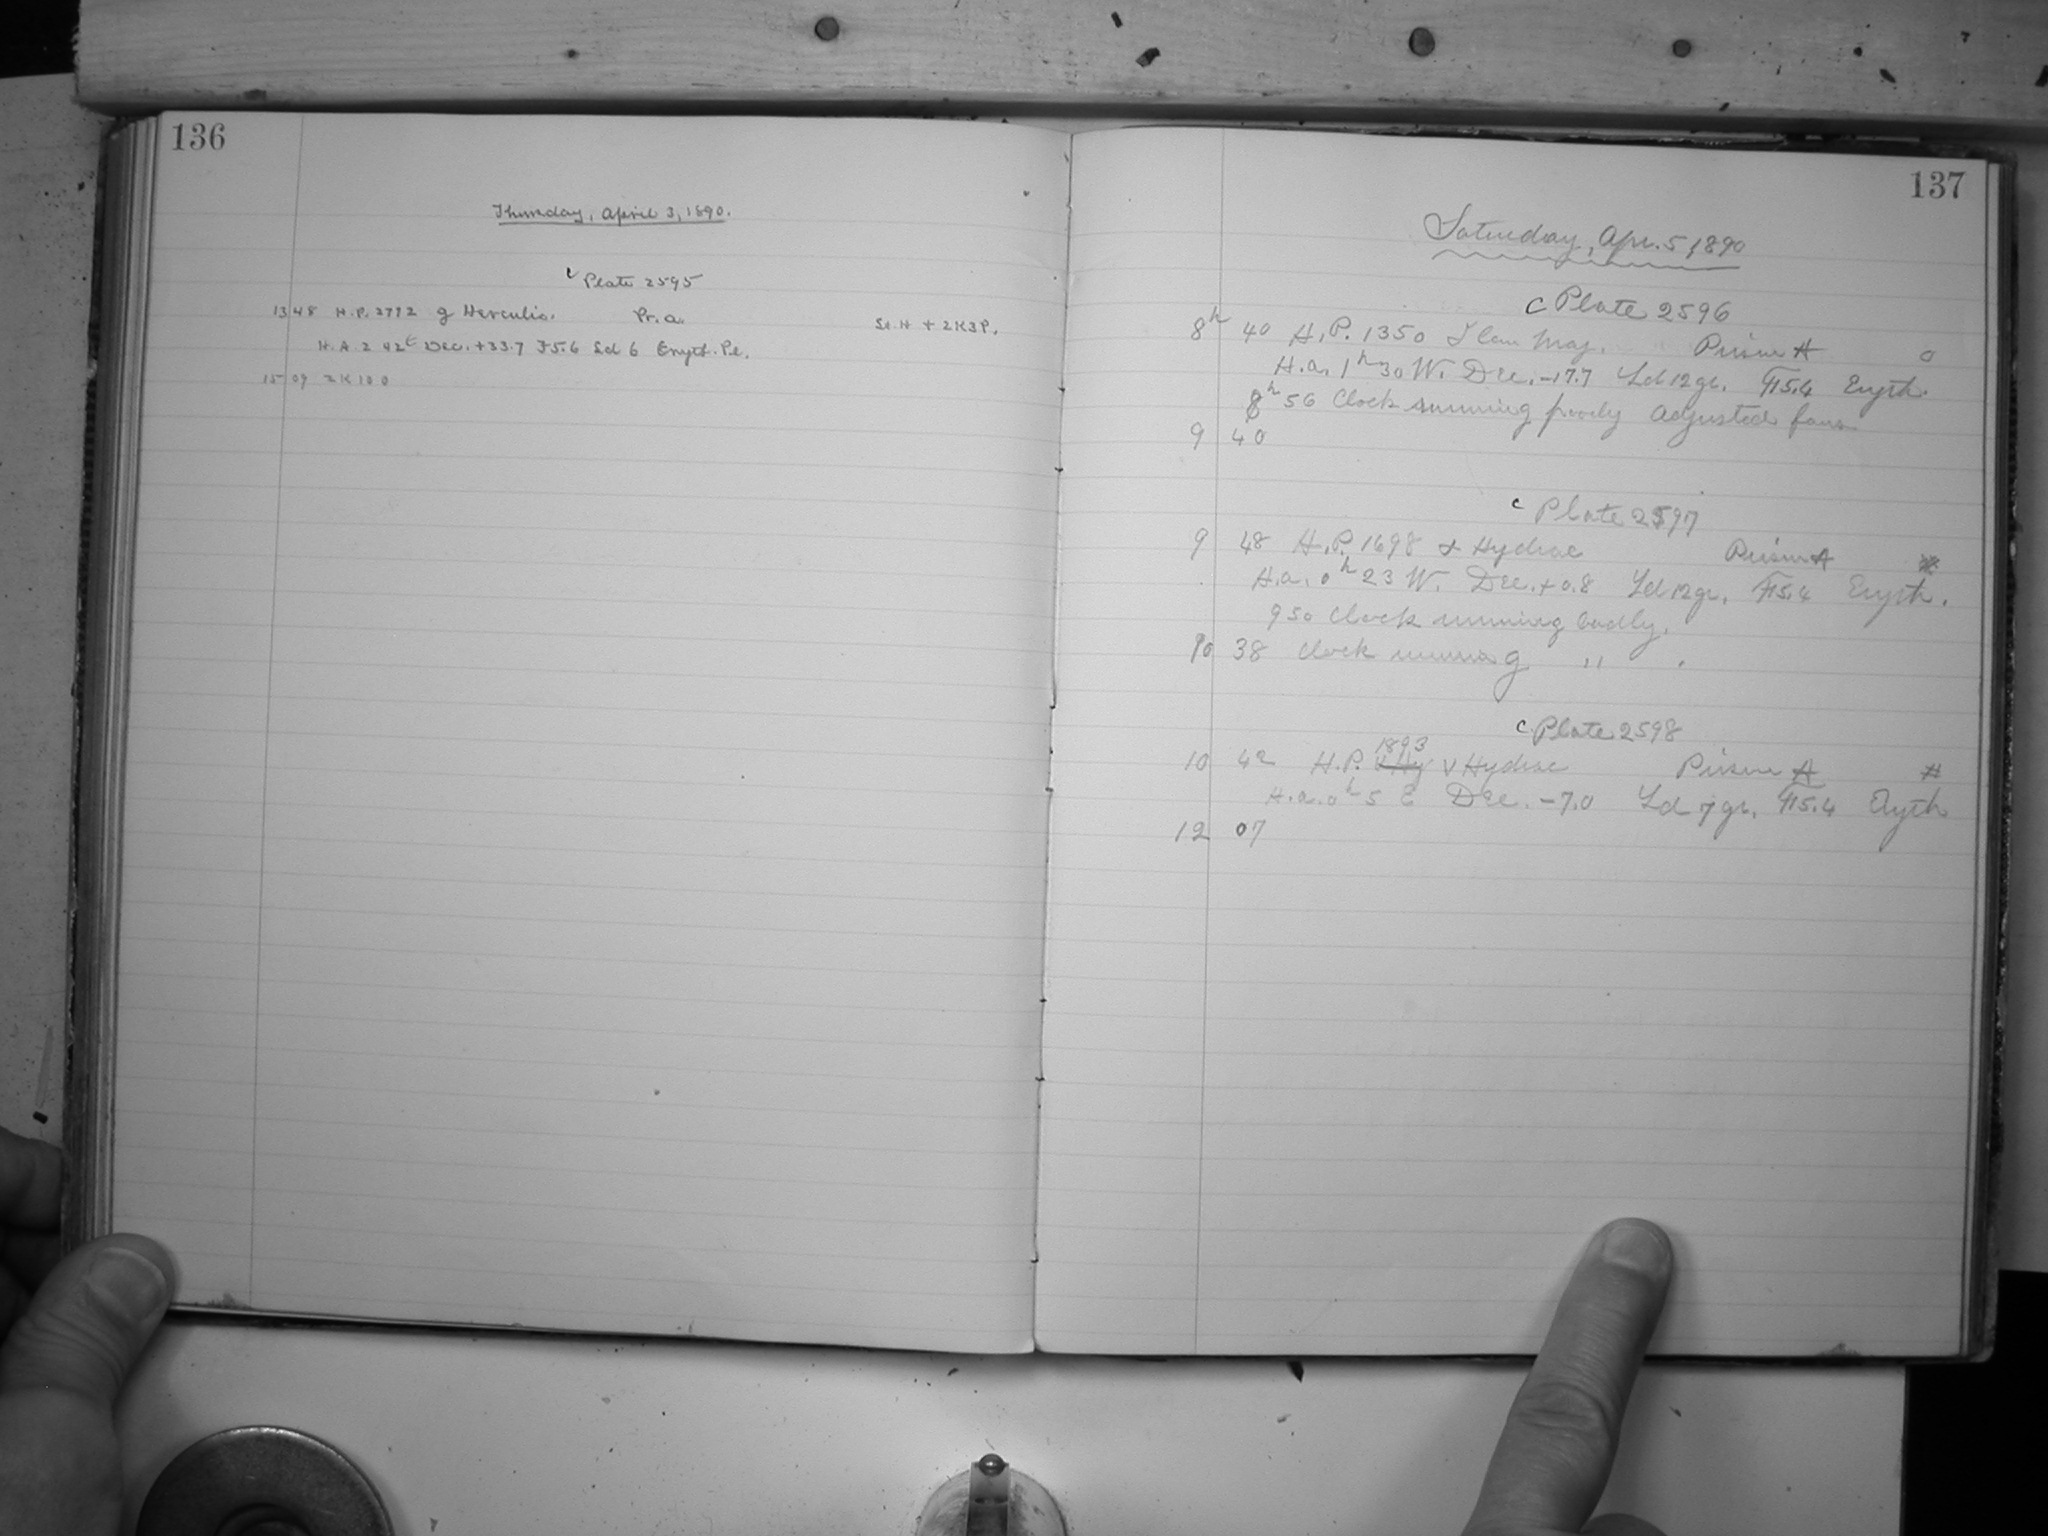 136
Thursday, April 3, 1890.
c Plate 2595
13 48 H.P. 2772 g Herculis. Pr. a. St. H + 2K3P.
H.A. 2 42 E Dec. +33.7 F5.6 Sd 6 Eryth. Pl.
15 09 2K100
137
Saturday, Apr. 5, 1890
C Plate 2596
8h 40 H.P. 1350 Can Maj. Prism A 0
H.a. 1h 30 W. Dec. -17.7 Sd 12 gr. F15.4 Eryth.
8h 56 Clock running poorly adjusted fans
9 40
c Plate 2597
9 48 H.P. 1698 Hydrae Prism A
H.a. 0h 23 W. Dec. +0.8 Sd 12 gr. F15.4 Eryth.
9 50 Clock running badly.
10 38 Clock running " .
c Plate 2598
10 42 H.P. 1893 ν Hydrae Prism A #
H.a. 0h 5 E Dec. -7.0 Sd 7 gr. F15.4 Eryth
12 07